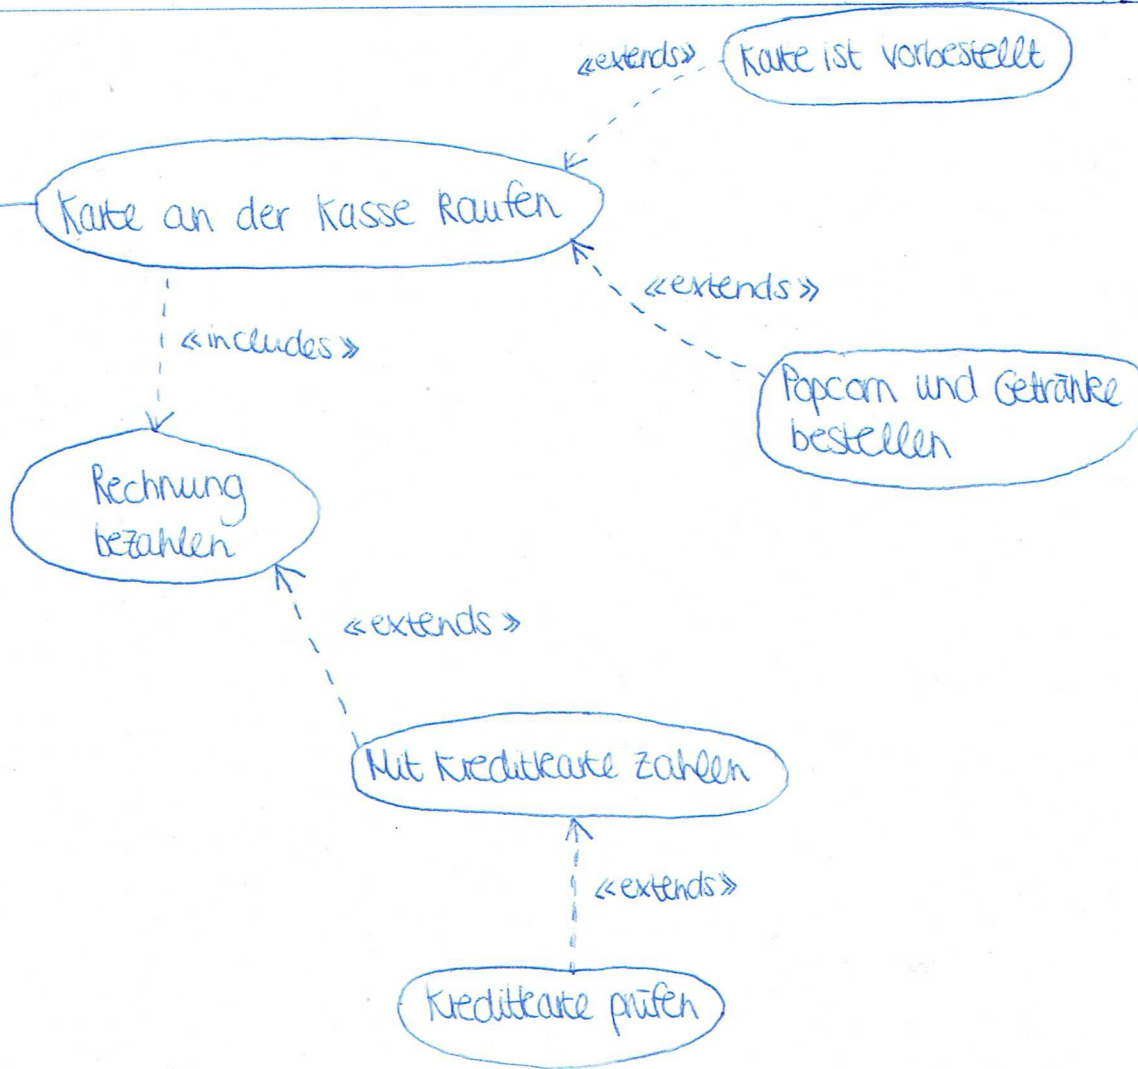 «extends»
Karte ist vorbestellt
Karte an der Kasse kaufen
«extends»
«includes»
Popcorn und Getränke
bestellen
Rechnung
bezahlen
«extends»
Mit Kreditkarte zahlen
«extends»
Kreditkarte prüfen